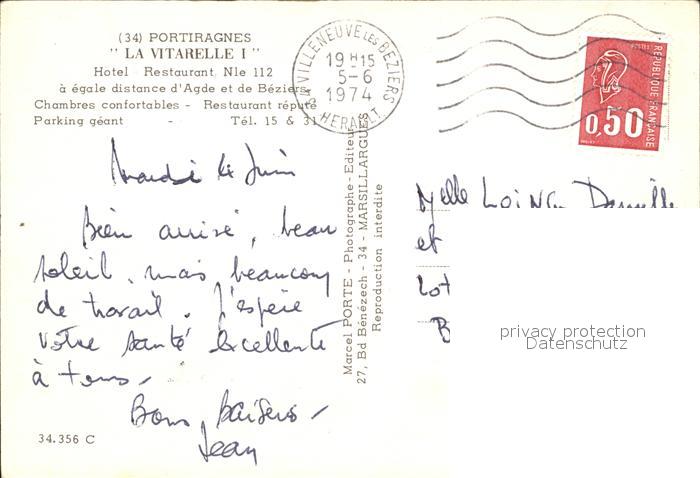 (34) PORTIRAGNES
" LA VITARELLE I "
Hotel - Restaurant Nle 112
à égale distance d'Agde et de Béziers
Chambres confortables - Restaurant réputé
Parking géant - Tél. 15 & 31
34 VILLENEUVE LES BEZIERS
19 H15
5-6
1974
HERAULT
POSTES
REPUBLIQUE FRANÇAISE
0,50
Mardi 4 Juin
Bien arrivé, beau
soleil, mais beaucoup
de travail. J'espère
votre santé excellente
à tous.
Bons baisers
Jean
34.356 C
Marcel PORTE - Photographe-Editeur
27, Bd Bénézech - 34 - MARSILLARGUES
Reproduction interdite
Melle
et
Lot
B
privacy protection
Datenschutz